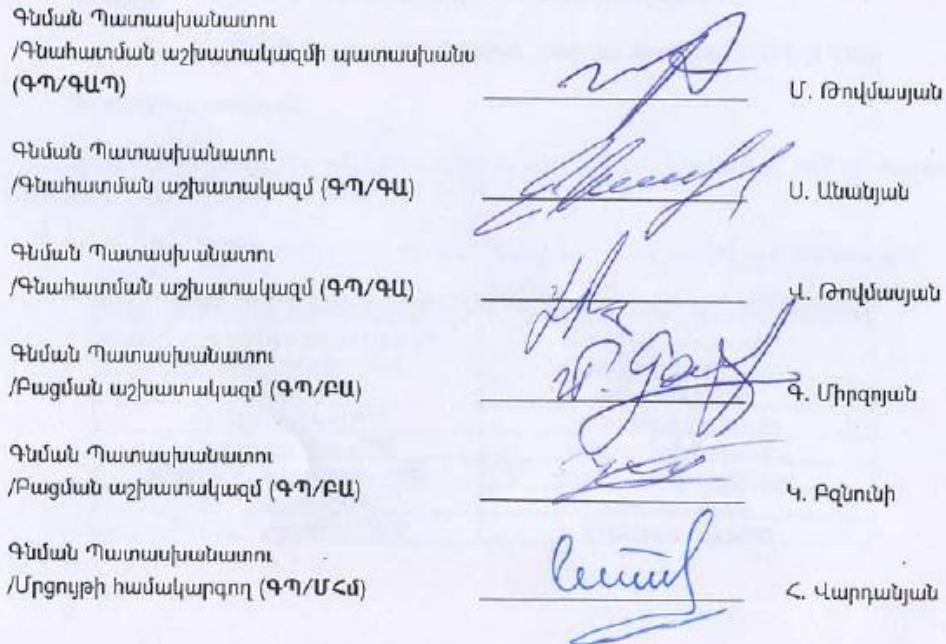 Գնման Պատասխանատու
/Գնահատման աշխատակազմի պատասխանս
(ԳՊ/ԳԱՊ) Մ. Թովմասյան
Գնման Պատասխանատու
/Գնահատման աշխատակազմ (ԳՊ/ԳԱ) Ս. Անանյան
Գնման Պատասխանատու
/Գնահատման աշխատակազմ (ԳՊ/ԳԱ) Վ. Թովմասյան
Գնման Պատասխանատու
/Բացման աշխատակազմ (ԳՊ/ԲԱ) Գ. Միրզոյան
Գնման Պատասխանատու
/Բացման աշխատակազմ (ԳՊ/ԲԱ) Կ. Բզնունի
Գնման Պատասխանատու
/Մրցույթի համակարգող (ԳՊ/ՄՀմ) Հ. Վարդանյան